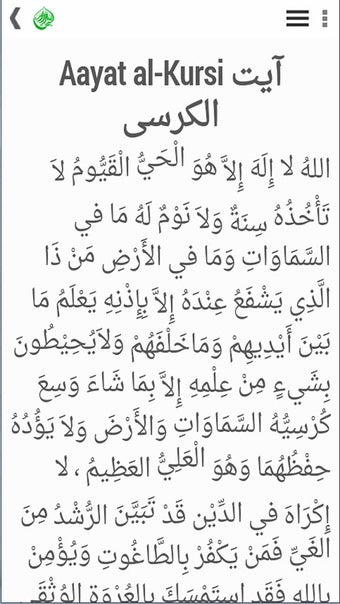 Aayat al-Kursi آیت
الکرسی
اللهُ لا إِلَهَ إِلاَّ هُوَ الْحَيُّ الْقَيُّومُ لاَ
تَأْخُذُهُ سِنَةٌ وَلاَ نَوْمٌ لَهُ مَا في
السَّمَاوَاتِ وَمَا في الأَرْضِ مَنْ ذَا
الَّذِي يَشْفَعُ عِنْدَهُ إِلاَّ بِإِذْنِهِ يَعْلَمُ مَا
بَيْنَ أَيْدِيهِمْ وَمَاخَلْفَهُمْ وَلاَيُحِيْطُونَ
بِشَيءٍ مِنْ عِلْمِهِ إِلاَّ بِمَا شَاءَ وَسِعَ
كُرْسِيُّهُ السَّمَاوَاتِ وَالأَرْضَ وَلاَ يَؤُدُهُ
حِفْظُهُمَا وَهُوَ الْعَلِيُّ العَظِيمُ ، لا
إِكْرَاهَ في الدِّيْنِ قَدْ تَبَيَّنَ الرُّشْدُ مِنَ
الْغَيِّ فَمَنْ يَكْفُرْ بِالطَّاغُوتِ وَيُؤْمِنْ
بِاللهِ فَقَدِ اسْتَمْسَكَ بِالعُرْوَةِ الوُثْقَى